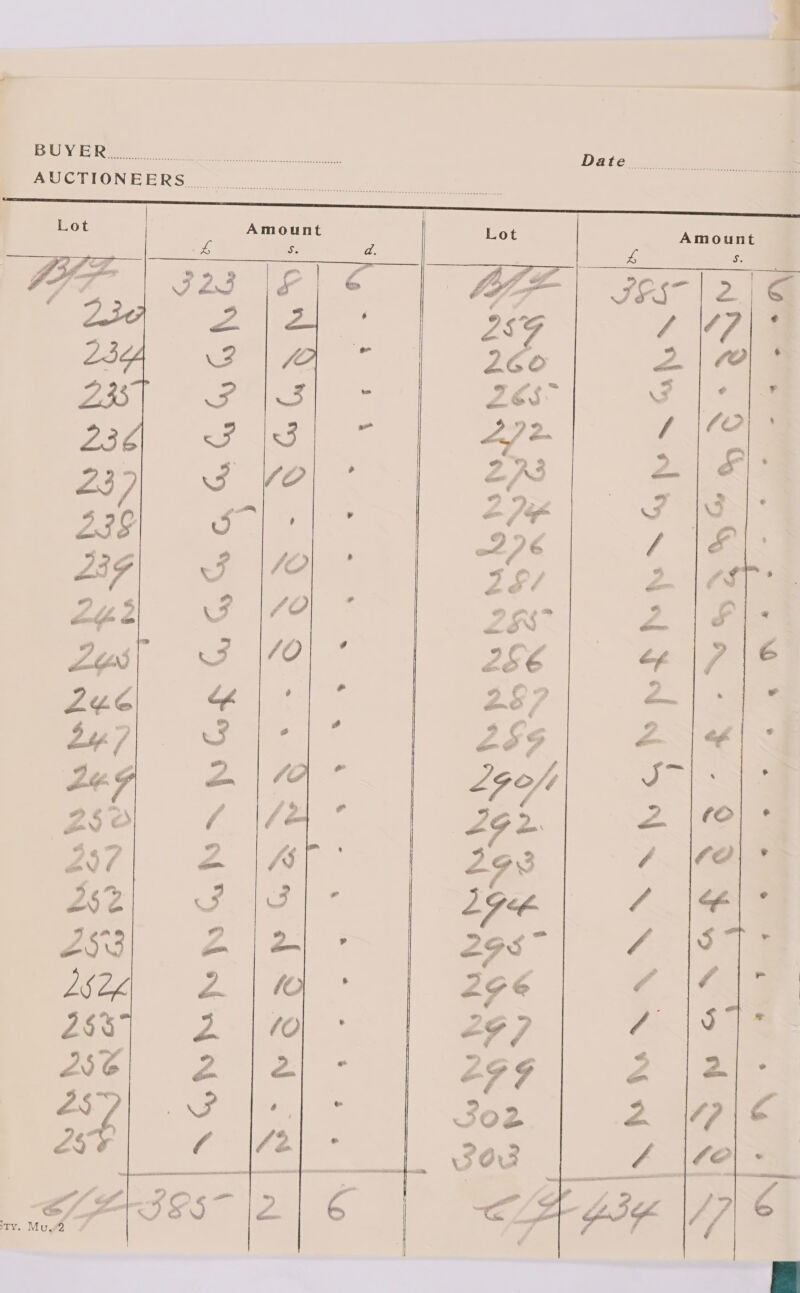 BUYER
Date
AUCTIONEERS
Lot Amount
£ s. d.
B/F 323 8 6
230 2 2 -
234 3 10 -
235 3 3 -
236 3 3 -
237 3 10 -
238 5 - -
239 3 10 -
242 3 10 -
245 3 10 -
246 4 - -
247 3 - -
249 2 10 -
250 1 12 -
251 2 15 -
252 3 3 -
253 2 2 -
254 2 10 -
255 2 10 -
256 2 2 -
257 3 - -
258 1 12 -
C/F 385 2 6
Lot Amount
£ s.
B/F 385 2 6
259 1 17 -
260 2 10 -
265 3 - -
272 1 10 -
273 2 8 -
274 3 3 -
276 1 8 -
281 2 15 -
285 2 8 -
286 4 7 6
287 2 - -
289 2 4 -
290/1 5 - -
292 2 10 -
293 1 10 -
294 1 4 -
295 1 5 -
296 1 1 -
297 1 5 -
299 2 2 -
302 2 17 6
303 1 10 -
C/F 434 17 6